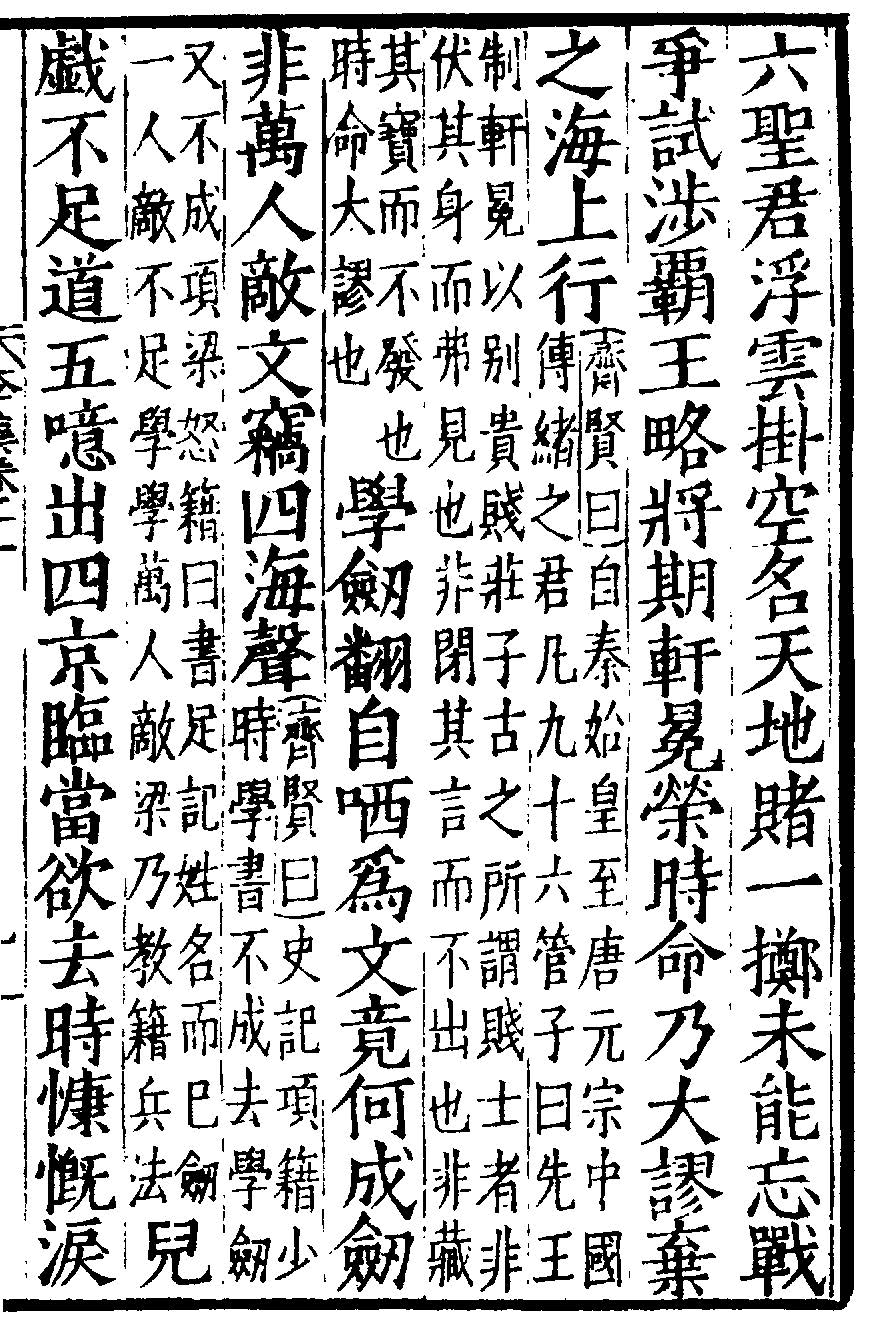 六聖君浮雲掛空名天地賭一擲未能忘戰
爭試涉霸王略將期軒冕榮時命乃大謬棄
之海上行
齊賢曰自秦始皇至唐元宗中國
傳緒之君凡九十六管子曰先王
制軒冕以别貴賤莊子古之所謂賤士者非
伏其身而弗見也非閉其言而不出也非藏
其寶而不發也
時命大謬也
學劒翻自哂爲文竟何成劒
非萬人敵文竊四海聲
齊賢曰史記項籍少
時學書不成去學劒
又不成項梁怒籍曰書足記姓名而已劒
一人敵不足學學萬人敵梁乃教籍兵法
兒
戯不足道五噫出四京臨當欲去時慷慨淚